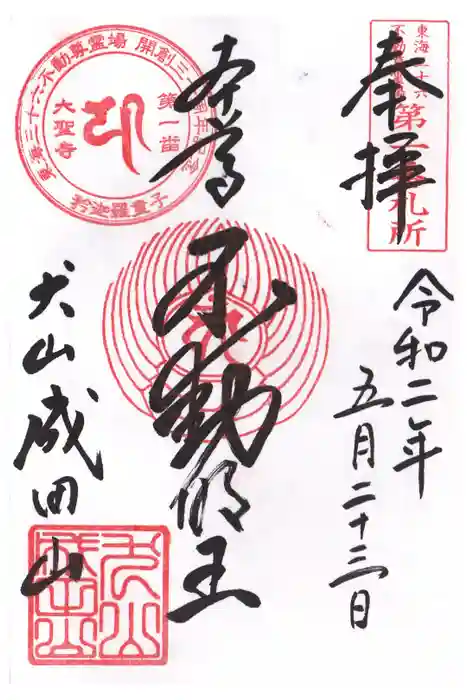 東海三十六
不動尊霊場
第一番札所
奉拝
令和二年
五月二十三日
本尊
不動明王
東海三十六不動尊霊場 開創三十周年記念
第一番
大聖寺
矜迦羅童子
犬山成田山
犬山
成田山